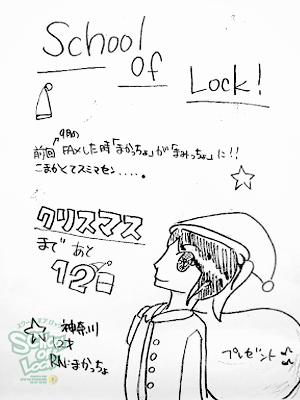 School
of
Lock!
9月の
前回FAXした時「まかっちょ」が「まみっちょ」に!!
こまかくてスミマセン.....。
クリスマス
まで あと
12日
プレゼント
神奈川
RN:まかっちょ